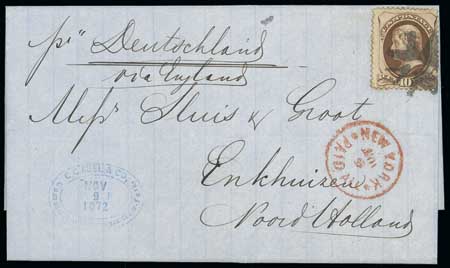 pr Deutschland
via England
Messrs Sluis & Groot
Enkhuizen
Noord Holland
NEW YORK
PAID
NOV
9
1872
10